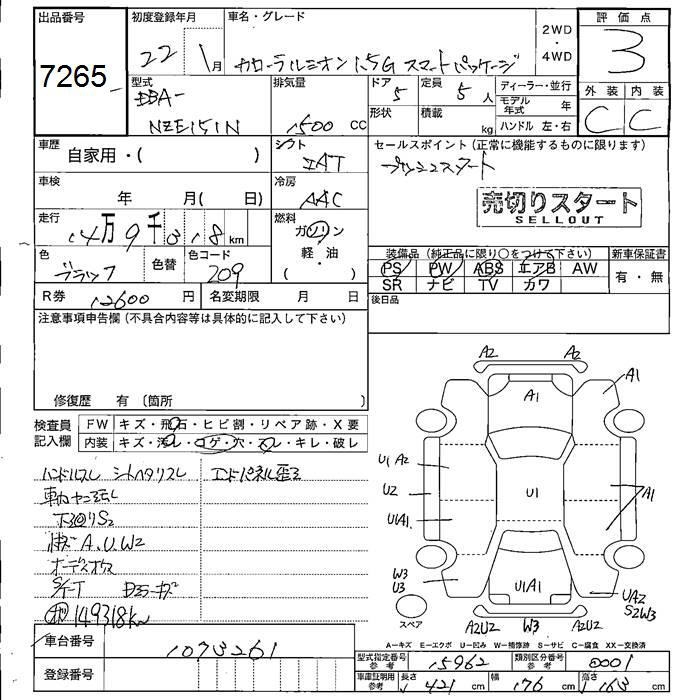 出品番号
7265
初度登録年月
22 1月
車名・グレード
カローラルミオン 1.5G スマートパッケージ
2WD
・
4WD
評価点
3
型式
DBA-
NZE151N
排気量
1500 cc
ドア
5
定員
5人
形状
積載
kg
ディーラー・並行
モデル年式 年
ハンドル 左・右
外装 内装
C C
車歴
自家用・( )
シフト
IAT
車検
年 月( 日)
冷房
AAC
走行
14万9千318km
燃料
ガソリン
・
軽・油
( )
色
ブラック
色替
色コード
209
R券
12600円
名変期限 月 日
セールスポイント(正常に機能するものに限ります)
プッシュスタート
売切りスタート
SELLOUT
装備品(純正品に限り○をつけて下さい)
新車保証書
PS PW ABS エアB AW
SR ナビ TV カワ
有・無
後日品
注意事項申告欄(不具合内容等は具体的に記入して下さい)
修復歴 有(箇所 )
検査員
記入欄
FW キズ・飛石・ヒビ割・リペア跡・X要
内装 キズ・汚レ・コゲ・穴・スレ・キレ・破レ
ハンドルスレ シートヘタリスレ
エンドパネル歪ミ
下回りS2
A.U.W2
149318km
車台番号
1073261
登録番号
A2 A2
A1 A1
U1 A2
U2
U1A1
U1
A1
U1A1
W3
U3
UA2
S2W3
スペア
A2U2 W3 A2U2
A−キズ E−エクボ U−凹み W−補修跡 S−サビ C−腐食 XX−交換済
型式指定番号
参考
15962
類別区分番号
参考
0001
車庫証明用
参考
長さ 421cm
幅 176cm
高さ 163cm